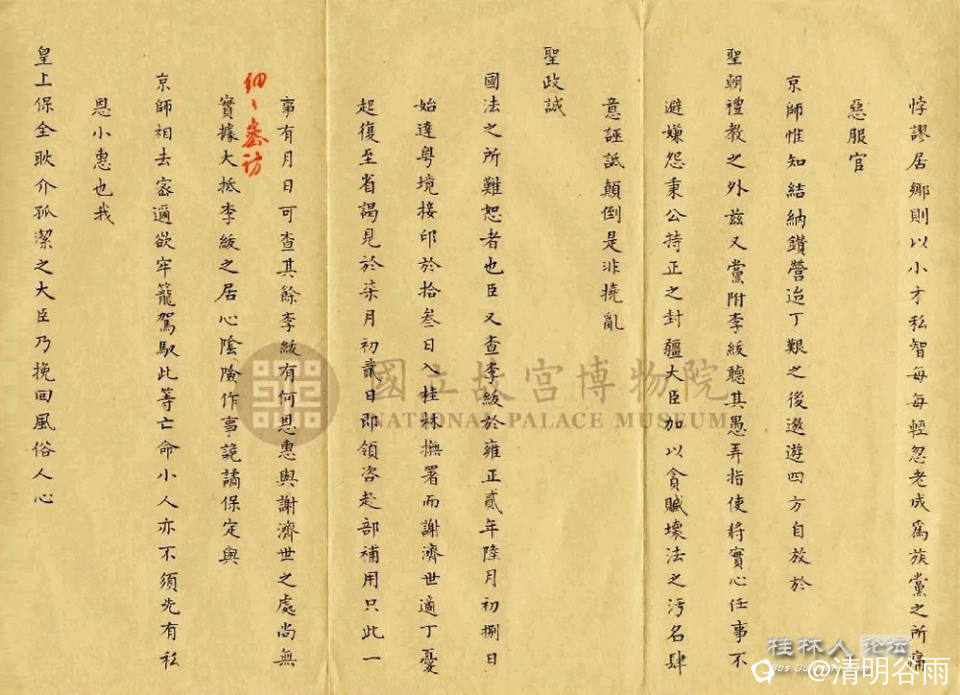 悖謬居鄉則以小才私智每每輕忽老成爲族黨之所痛
惡服官
京師惟知結納鑽營迨丁艱之後遨遊四方自放於
聖朝禮教之外兹又黨附李紱聽其愚弄指使將實心任事不
避嫌怨秉公持正之封疆大臣加以貪贓壞法之污名肆
意誣詆顛倒是非撓亂
聖政誠
國法之所難恕者也臣又查李紱於雍正貳年陸月初捌日
始達粵境接印於拾叁日入桂林撫署而謝濟世適丁憂
起復至省謁見於柒月初貳日即領咨赴部補用只此一
事有月日可查其餘李紱有何恩惠與謝濟世之處尚無
細々密訪
實據大抵李紱之居心陰險作事詭譎保定與
京師相去密邇欲牢籠駕馭此等亡命小人亦不須先有私
恩小惠也我
皇上保全耿介孤潔之大臣乃挽回風俗人心
國立故宮博物院
NATIONAL PALACE MUSEUM
桂林人论坛
@清明谷雨